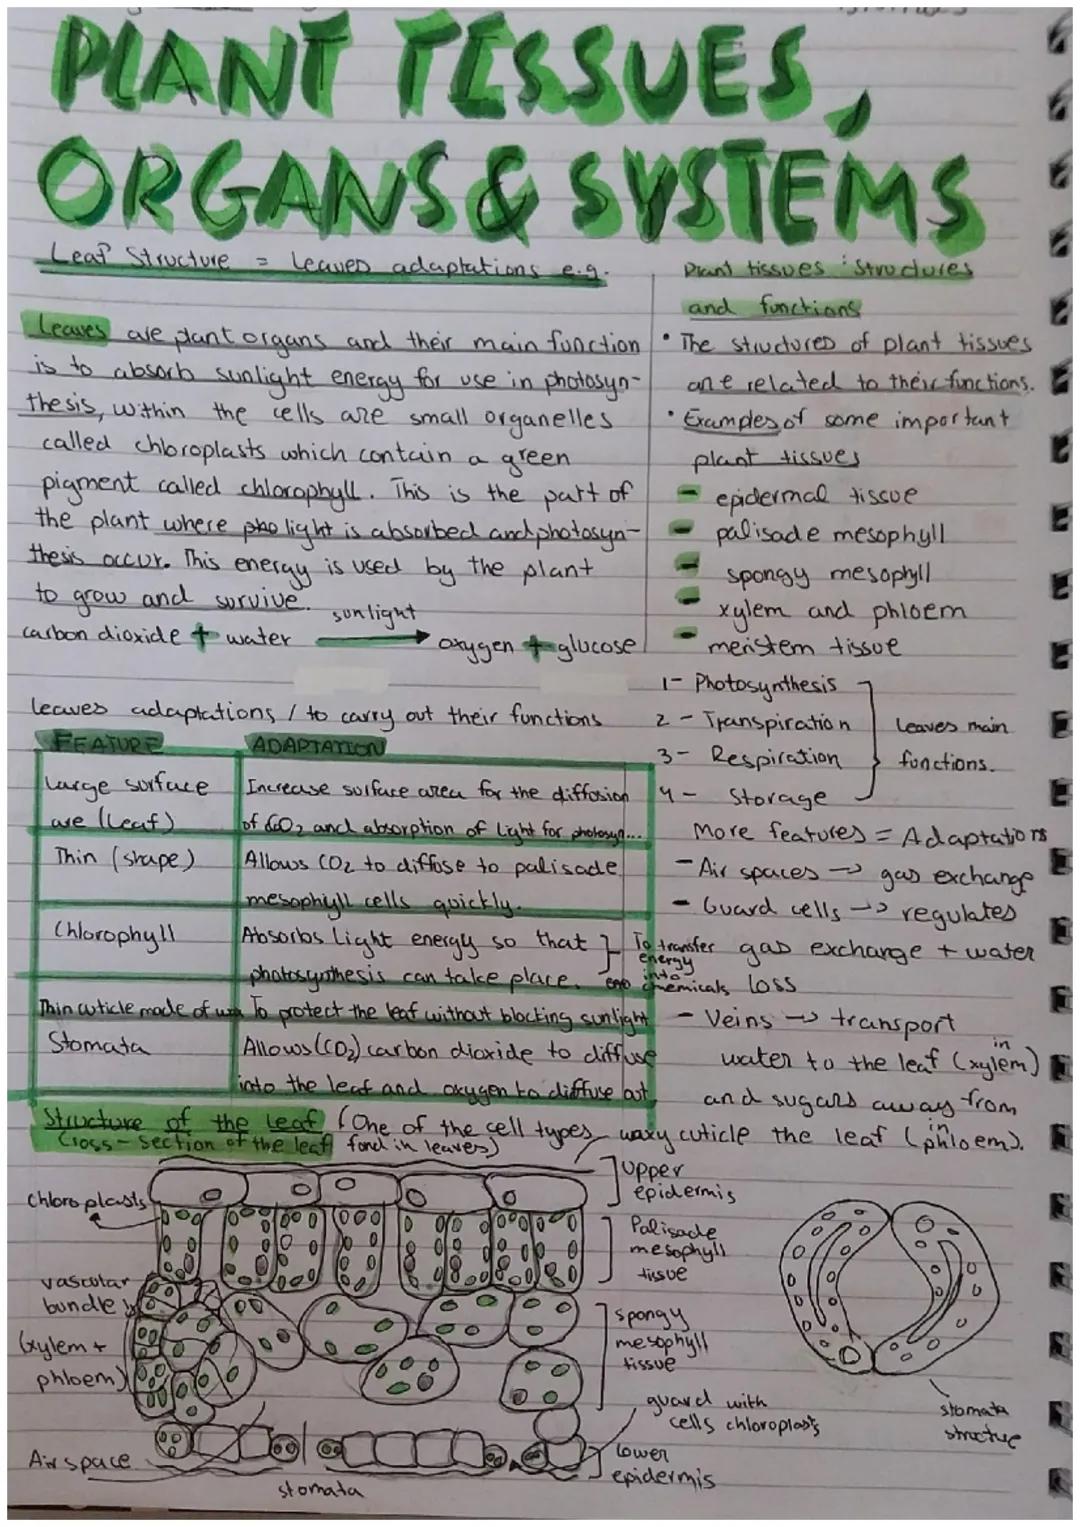 PLANT TISSUES,
ORGANS & SYSTEMS
Leaf Structure = Leaves adaptations e.g.
Leaves are plant organs and their main function
is to absorb sunlight energy for use in photosyn-
thesis, within the cells are small organelles
called chloroplasts which contain a green
pigment called chlorophyll. This is the part of
the plant where light is absorbed and photosyn-
thesis occur. This energy is used by the plant
to grow and survive.
sunlight
carbon dioxide + water → oxygen + glucose
Plant tissues : structures
and functions
• The structures of plant tissues
are related to their functions.
• Examples of some important
plant tissues
- epidermal tissue
- palisade mesophyll
- spongy mesophyll
- xylem and phloem
- meristem tissue
1- Photosynthesis
2 - Transpiration
3- Respiration
4 - Storage
leaves main
functions.
leaves adaptations / to carry out their functions
FEATURE ADAPTATION
Large surface Increase surface area for the diffusion
are (leaf) of CO2 and absorption of light for photosyn...
Thin (shape) Allows CO2 to diffuse to palisade
mesophyll cells quickly.
Chlorophyll Absorbs light energy so that
photosynthesis can take place.
To transfer
energy
into
chemicals
Thin cuticle made of To protect the leaf without blocking sunlight
Stomata Allows (CO2) carbon dioxide to diffuse
into the leaf and oxygen to diffuse out
More features = Adaptations
- Air spaces → gas exchange
- Guard cells → regulates
gas exchange + water
loss
- Veins → transport
water to the leaf (in xylem)
and sugars away from
the leaf (in phloem).
Structure of the leaf (One of the cell types
Cross-section of the leaf fond in leaves)
waxy cuticle
upper
epidermis
chloroplasts
Palisade
mesophyll
tissue
vascular
bundle
(xylem +
phloem)
spongy
mesophyll
tissue
guard with
cells chloroplasts
Lower
epidermis
Air space
stomata
stomata
structue